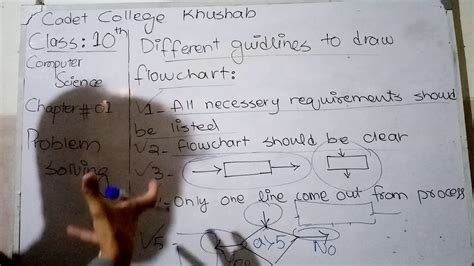 Cadet College Khushab
Class: 10th
Computer
Science
Chapter #01
Problem
solving
Different guidlines to draw
flowchart:
√1- All necessery requirements should
be listed
√2- flowchart should be clear
√3-
- Only one line come out from process
√5-
a>5
No